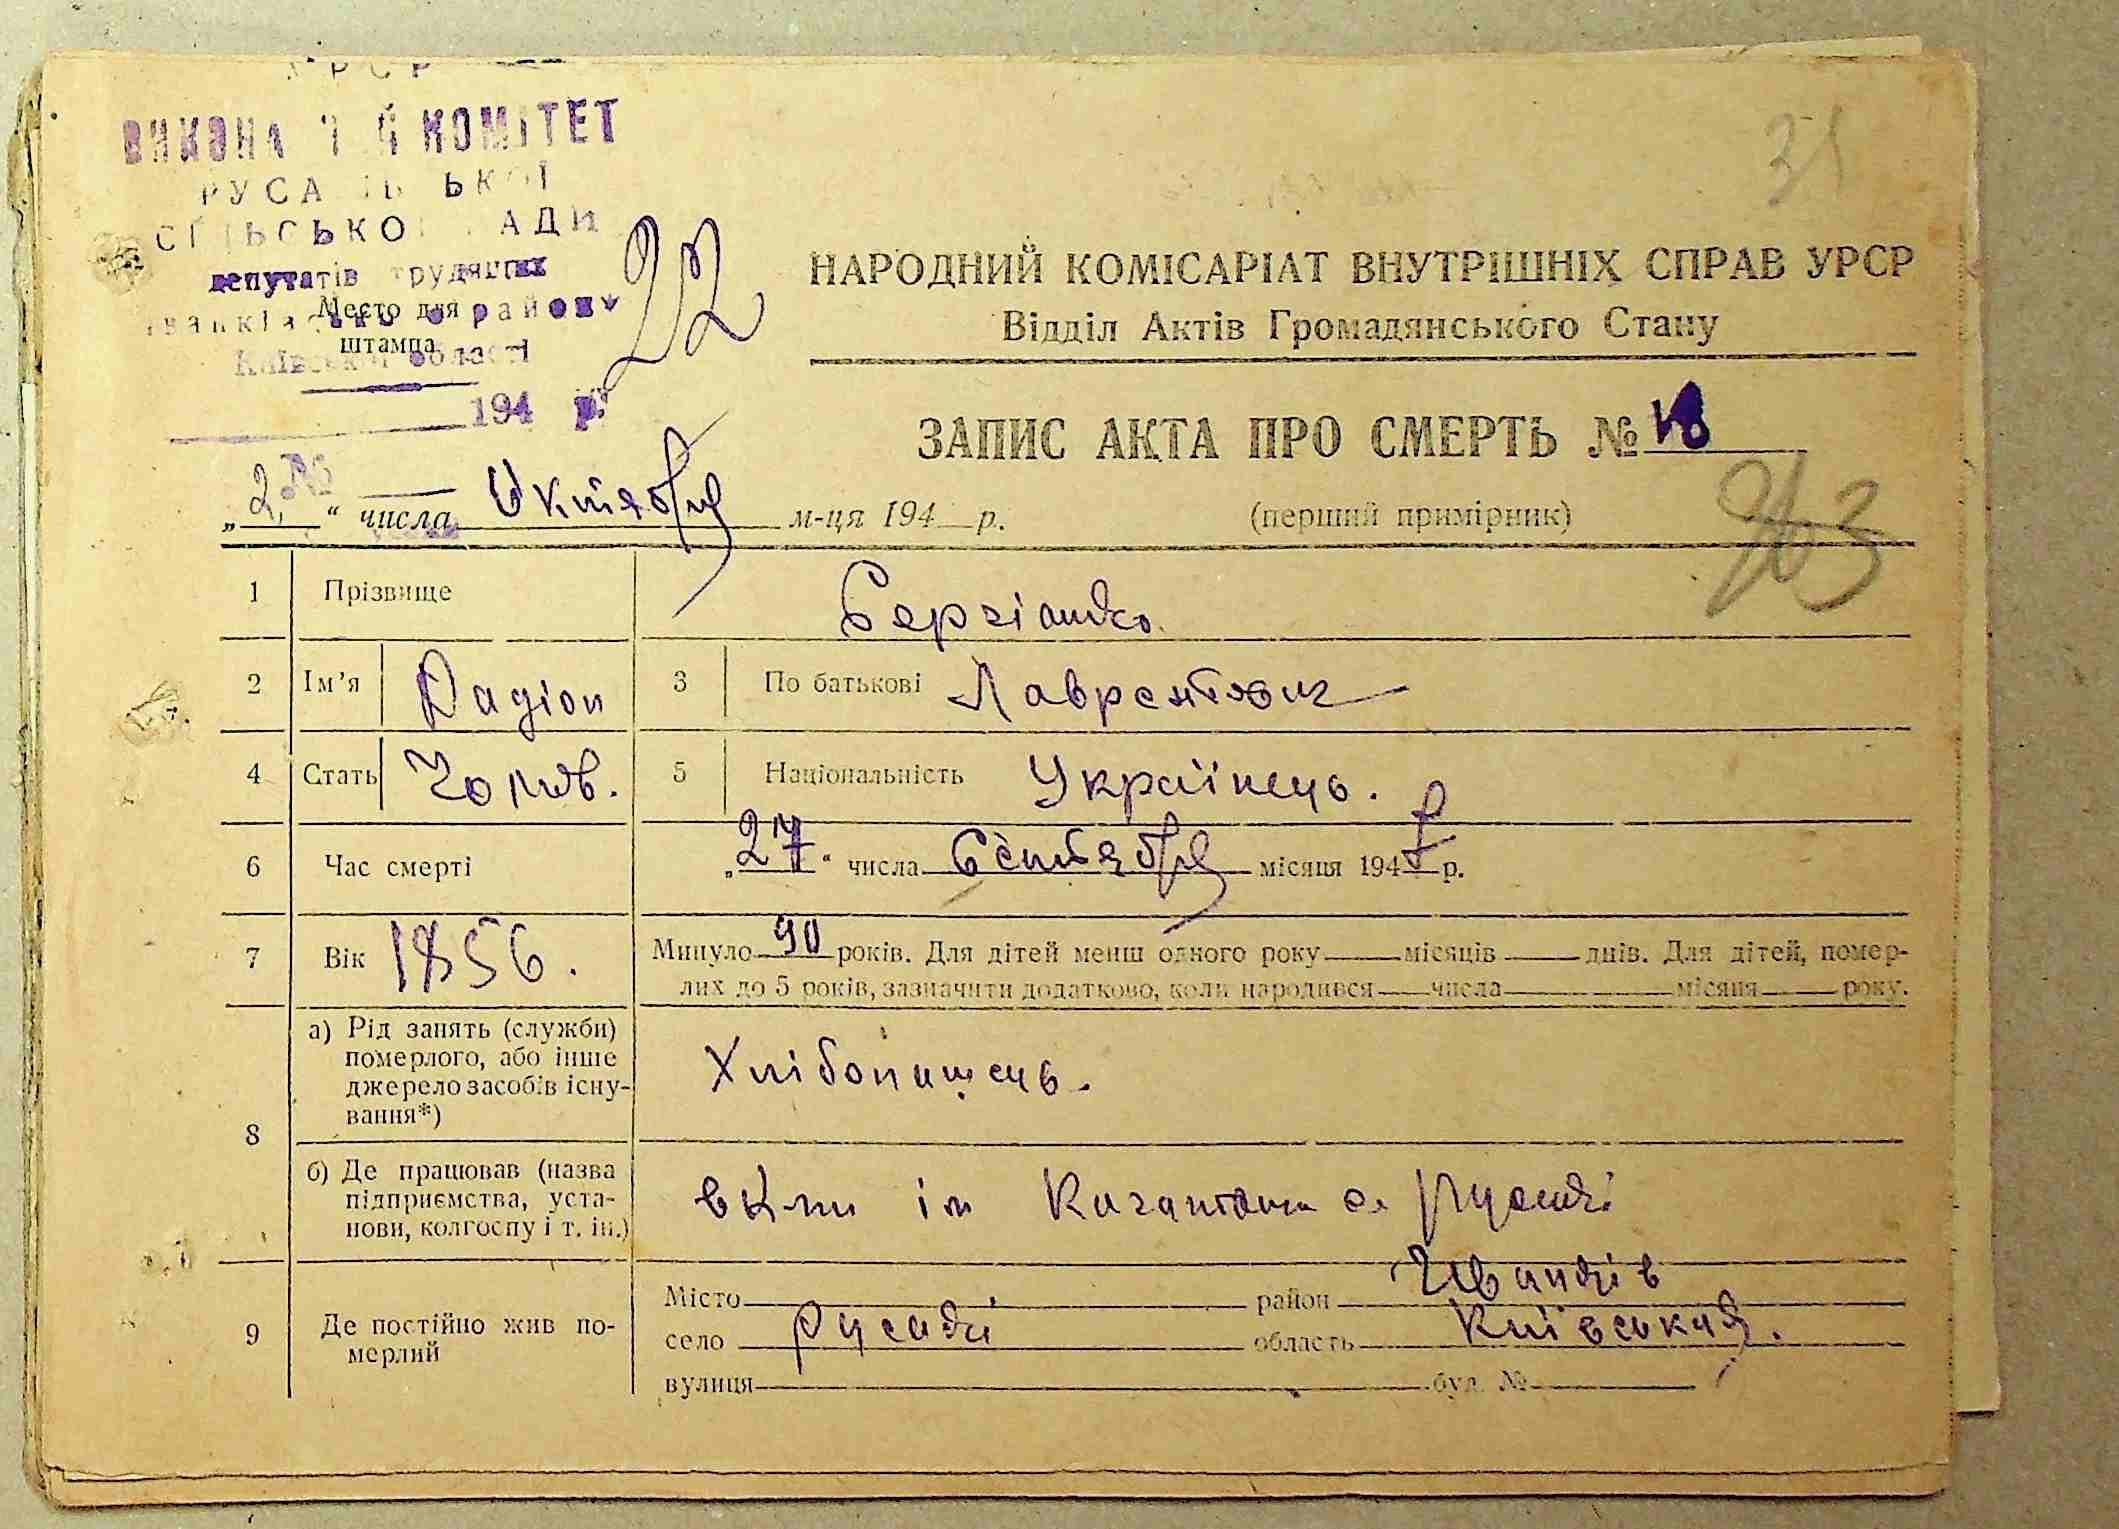 УРСР
ВИКОНА КОМІТЕТ
РУСАКІВСЬКОЇ
СІЛЬСЬКОЇ РАДИ
депутатів трудящих
Іванківського району
Київської області
194 р.
№
Место для
штампа
22
31
НАРОДНИЙ КОМІСАРІАТ ВНУТРІШНІХ СПРАВ УРСР
Відділ Актів Громадянського Стану
ЗАПИС АКТА ПРО СМЕРТЬ №
„2“ числа Октября м-ця 194 р. (перший примірник)
1 Прізвище
2 Ім’я Радіон 3 По батькові Лаврентович
4 Стать Чолов. 5 Національність Українець.
6 Час смерті „27“ числа Сентября місяця 194 р.
7 Вік 1856. Минуло 90 років. Для дітей менш одного року місяців днів. Для дітей, помер-
лих до 5 років, зазначити додатково, коли народився числа місяця року.
8 а) Рід занять (служби)
померлого, або інше
джерело засобів існу-
вання*)
Хлібопашець.
б) Де працював (назва
підприємства, уста-
нови, колгоспу і т. ін.)
ім Кагановича с. Русакі
9 Де постійно жив по-
мерлий
Місто район Іванків
село Русакі область Київська.
вулиця буд. №